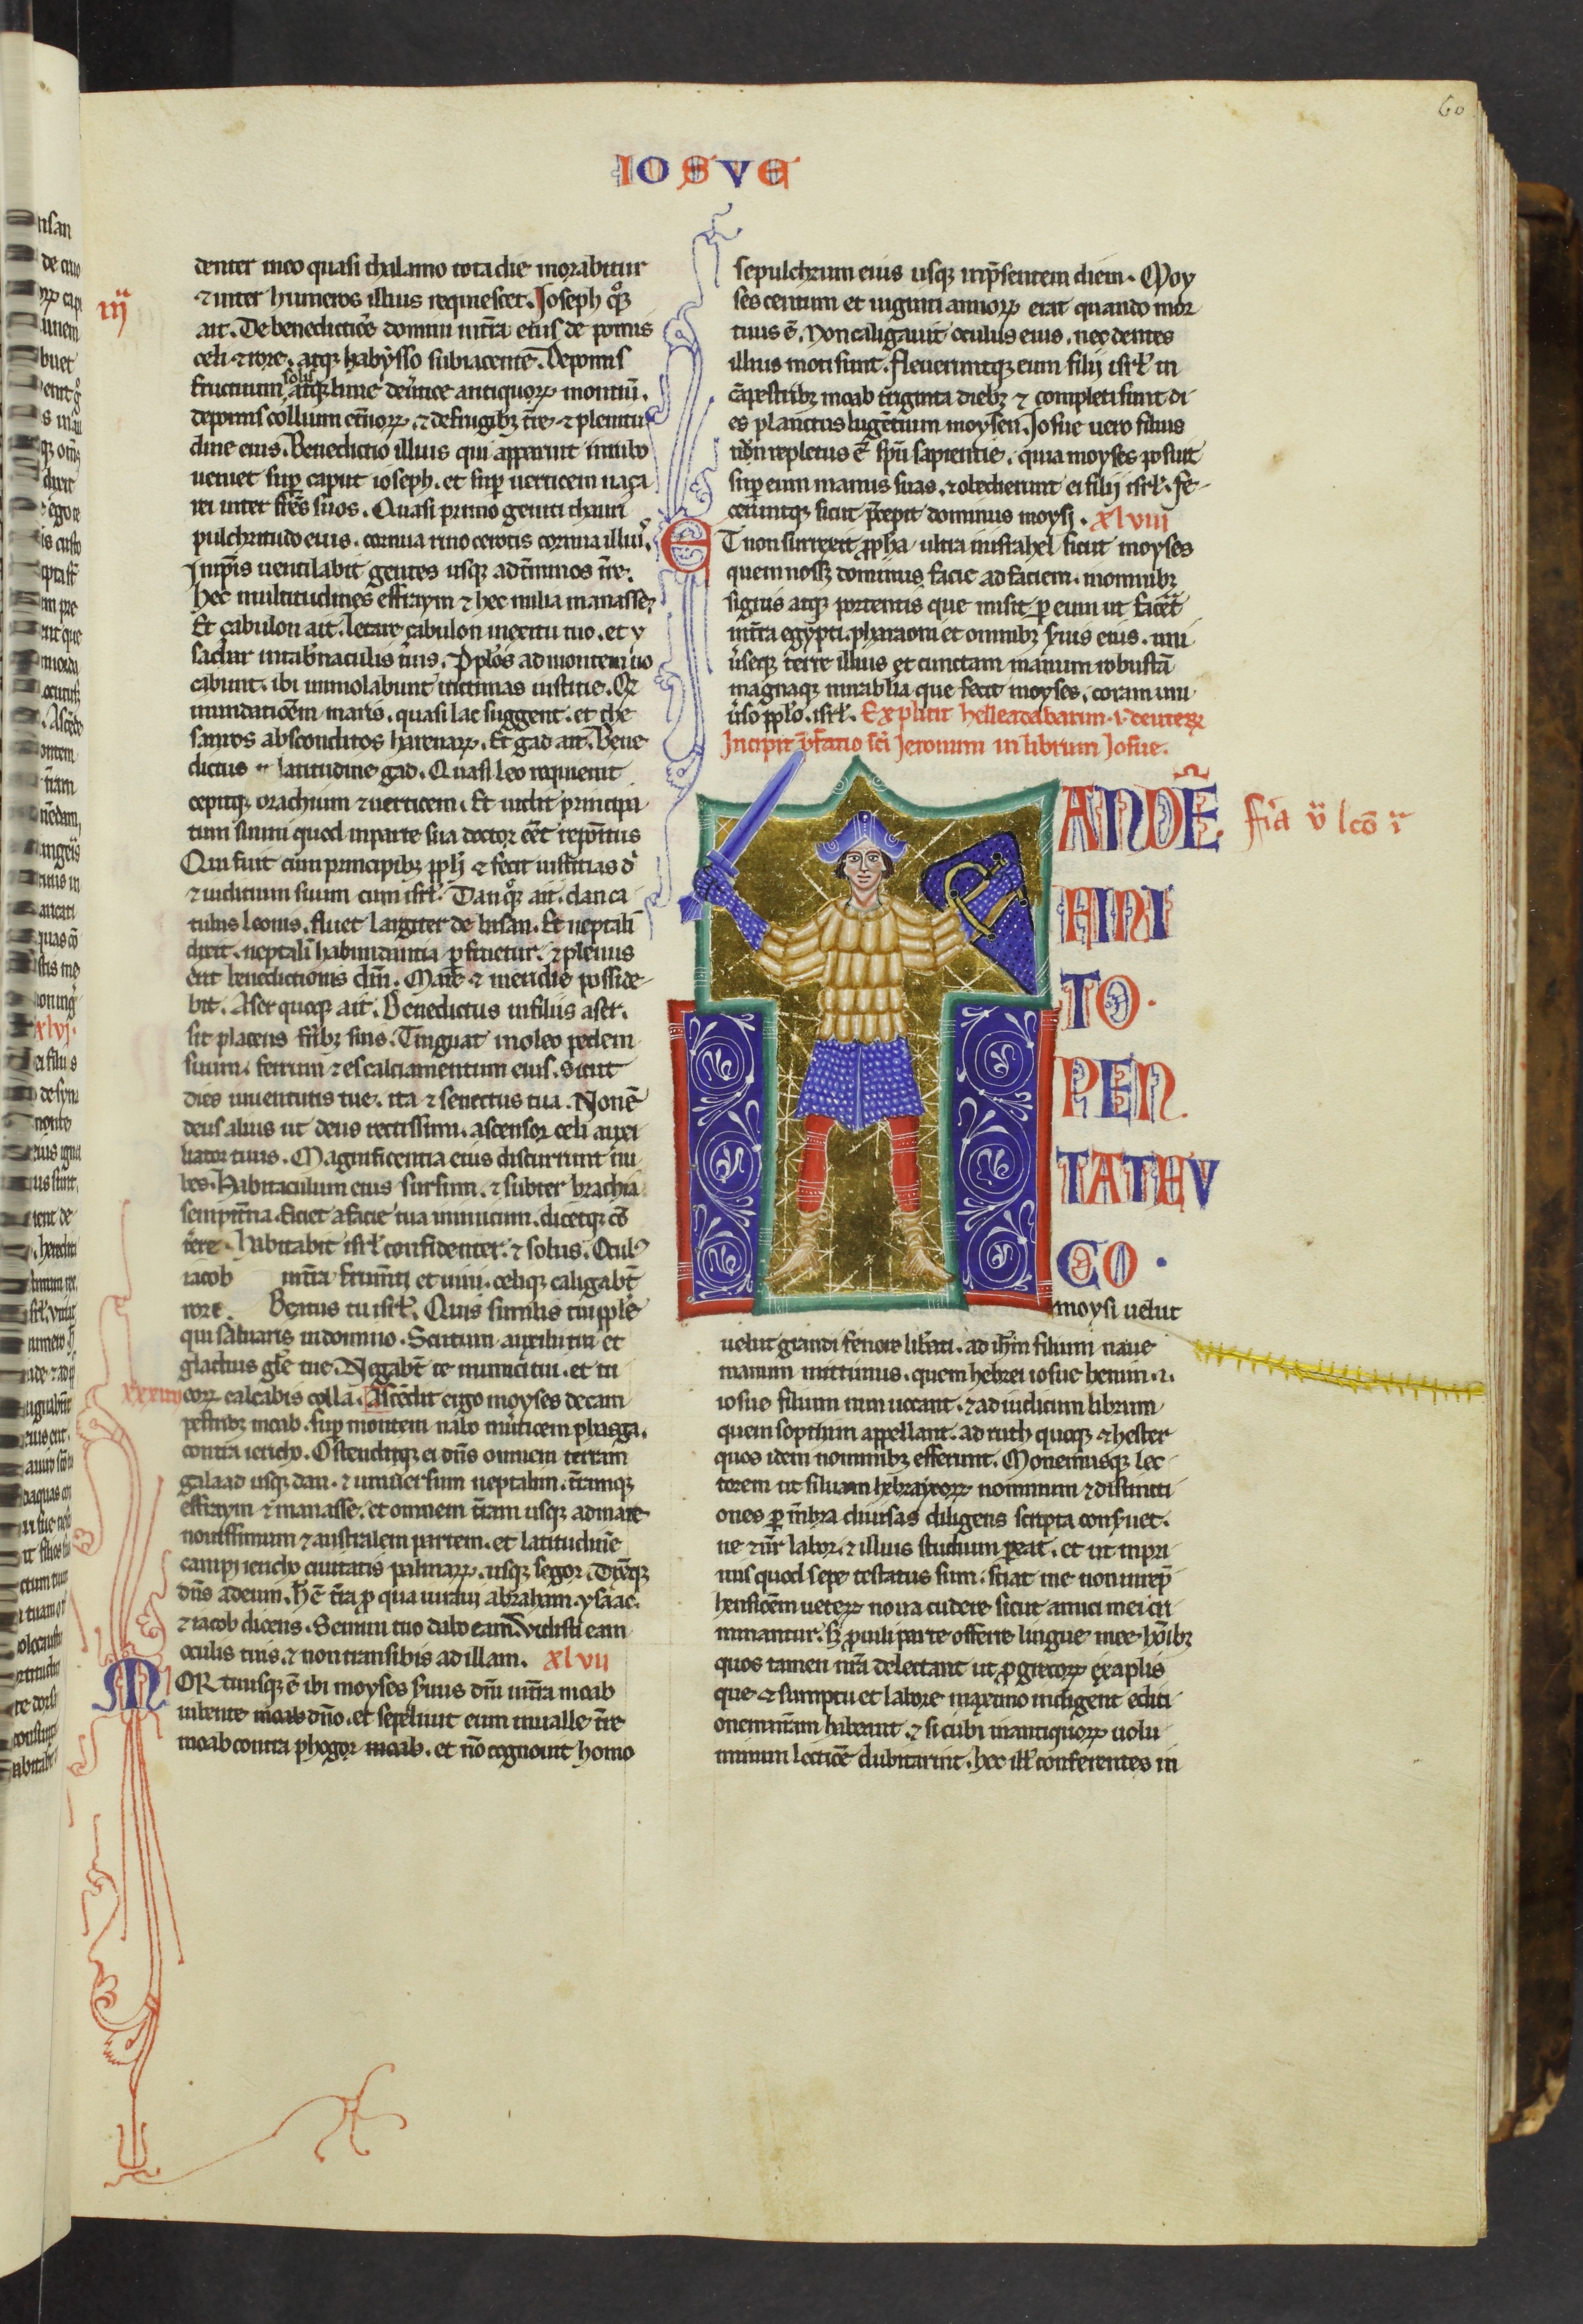 60
IOSVE
denter in eo quasi thalamo tota die morabitur
⁊ inter humeros illius requiescet. Joseph qͦꝫ
ait. De benedictiōe domini int̄ra eius de pomis
celi ⁊ rore. atqꝫ habẏsso subiacente. De pomis
fructuum solis atqꝫ lune. de ū̓tice antiquoꝝ montiū.
de pomis collium et̓noꝝ. ⁊ de frugibꝫ tr̄e. ⁊ plenitu
dine eius. Benedictio illius qui apparuit in rubo
ueniet suꝑ caput ioseph. et suꝑ uerticem naça
rei inter fr̄es suos. Quasi primo geniti thauri
pulchritudo eius. cornua rinocerotis cornua illiu᷒.
In ip̄is uentilabit gentes usqꝫ ad t̓minos tr̄e.
hec multitudines effraym ⁊ hec milia manasse.
Et çabulon ait. letare çabulon in exitu tuo. et y
sachar in tab̓naculis tuis. P̄pl̓os ad montem uo
cabunt. ibi immolabunt uictimas iustitie. Qͥ
inundatiōem maris. quasi lac suggent. et the
sauros absconditos harenaꝝ. Et gad ait. Bene
dictus in latitudine gad. Quasi leo requieuit
cepitqꝫ brachium ⁊ uerticem. Et uidit principa
tum suum quod in parte sua doctor eēt repōitus
Qui fuit cum principibꝫ pp̄li ⁊ fecit iustitias dn̄i
⁊ iuditium suum cum isrl̄. Dan qͦꝫ ait. dan ca
tulus leonis. fluet largiter de basan. Et neptali
dixit. neptali habundantia ꝑfruetur. ⁊ plenus
erit benedictionis dn̄i. Mare ⁊ meridie posside
bit. Aser quoqꝫ ait. Benedictus in filiis aser.
sit placens fr̄ibꝫ suis. Tinguat in oleo pedem
suum. ferrum ⁊ es calciamentum eius. Sicut
dies iuuentutis tue. ita ⁊ senectus tua. Non ē
deus alius ut deus rectissimi. ascensor celi auxi
liator tuus. Magnificentia eius discurrunt nu
bes. Habitaculum eius sursum. ⁊ subter brachia
sempit̓na. Eiciet a facie tua inimicum. dicetqꝫ cō
tere. Habitabit isrl̄ confidenter. ⁊ solus. Oculꝰ
iacob int̄ra frum̄ti et uini. celiqꝫ caligabt̄
rore. Beatus tu isrl̄. Quis similis tui pp̄le
qui saluaris in domino. Scutum auxilii tui et
gladius gl̄e tue. Negabt̄ te inimici tui. et tu
eoꝝ calcabis colla. Ascēdit ergo moyses de cam
pestribꝫ moab. suꝑ montem nabo in u̓ticem phasga.
contra iericho. Ostenditqꝫ ei dn̄s omnem terram
galaad usqꝫ dan. ⁊ uniuersum neptalim. t̄ramqꝫ
effraym ⁊ manasse. et omnem t̄ram usqꝫ ad mare
nouissimum ⁊ australem partem. et latitudinē
campi iericho ciuitatis palmaꝝ. usqꝫ segor. Dixitqꝫ
dn̄s ad eum. Hec ē t̄ra ꝓ qua iuraui abraham. ysaac.
⁊ iacob dicens. Semini tuo dabo eam. Vidisti eam
oculis tuis. ⁊ non transibis ad illam. xlvii
MORtuusqꝫ ē ibi moyses s̓uus dn̄i int̄ra moab
iubente moab dn̄o. et sepeliuit eum in ualle tr̄e
moab contra phogor moab. et nō cognouit homo
iij
xxxiiii
sepulchrum eius usqꝫ in p̄sentem diem. Moy
ses centum et uiginti annoꝝ erat quando mor
tuus ē. Non caligauit oculus eius. nec dentes
illius moti sunt. Fleueruntqꝫ eum filii isrl̄ in
cāpestribꝫ moab triginta diebꝫ ⁊ completi sunt di
es planctus lugētium moysen. Josue uero filius
nun repletus ē sp̄u sapientie. quia moyses posuit
suꝑ eum manus suas. ⁊ obedierunt ei filii isrl̄. Fe
ceruntqꝫ sicut p̄cepit dominus moysi. xlviii
ET non surrexit ꝓpha ultra in israhel sicut moyses
quem nosset dominus facie ad faciem. in omnibꝫ
signis atqꝫ portentis que misit ꝑ eum ut facēt
int̄ra egypti. pharaoni et omnibꝫ s̓uis eius. uni
u̓seqꝫ terre illius et cunctam manum robustā
magnaqꝫ mirabilia que fecit moyses. coram uni
u̓so pp̄lo. isrl̄. Explicit helleaddabarim. i. deuteroꝝ
Incipit p̄fatio sc̄i Jeronimi in librum Josue.
TANDĒ
FINI
TO.
PEN
TATHEV
CO.
moysi uelut
uelut grandi fenore lib̓ati. ad ih̄m filium naue
manum mittimus. quem hebrei iosue bennun. i.
iosue filium nun uocant. ⁊ ad iudicum librum
quem sopthim appellant. ad ruth quoqꝫ ⁊ hester
quos idem nominibꝫ efferunt. Monemusqꝫ lec
torem ut siluam hebraycoꝝ nominum ⁊ distincti
ones ꝑ mēbra diuisas diligens scriptor conseruet.
ne ⁊ nr̄ labor. ⁊ illius studium ꝑeat. et ut in pri
mis quod sepe testatus sum. sciat me non in rep̄
hensiōem ueteꝝ noua cudere sicut amici mei cri
minantur. sꝫ ꝓ uirili parte offerre lingue mee hoībꝫ
quos tamen nr̄a delectant ut ꝓ grecoꝝ exaplis
que ⁊ sumptu et labore maximo indigent editi
onem nr̄am habeant. ⁊ sicubi in antiquoꝝ uolu
minum lectiōe dubitarint. hec ill̓ conferentes in